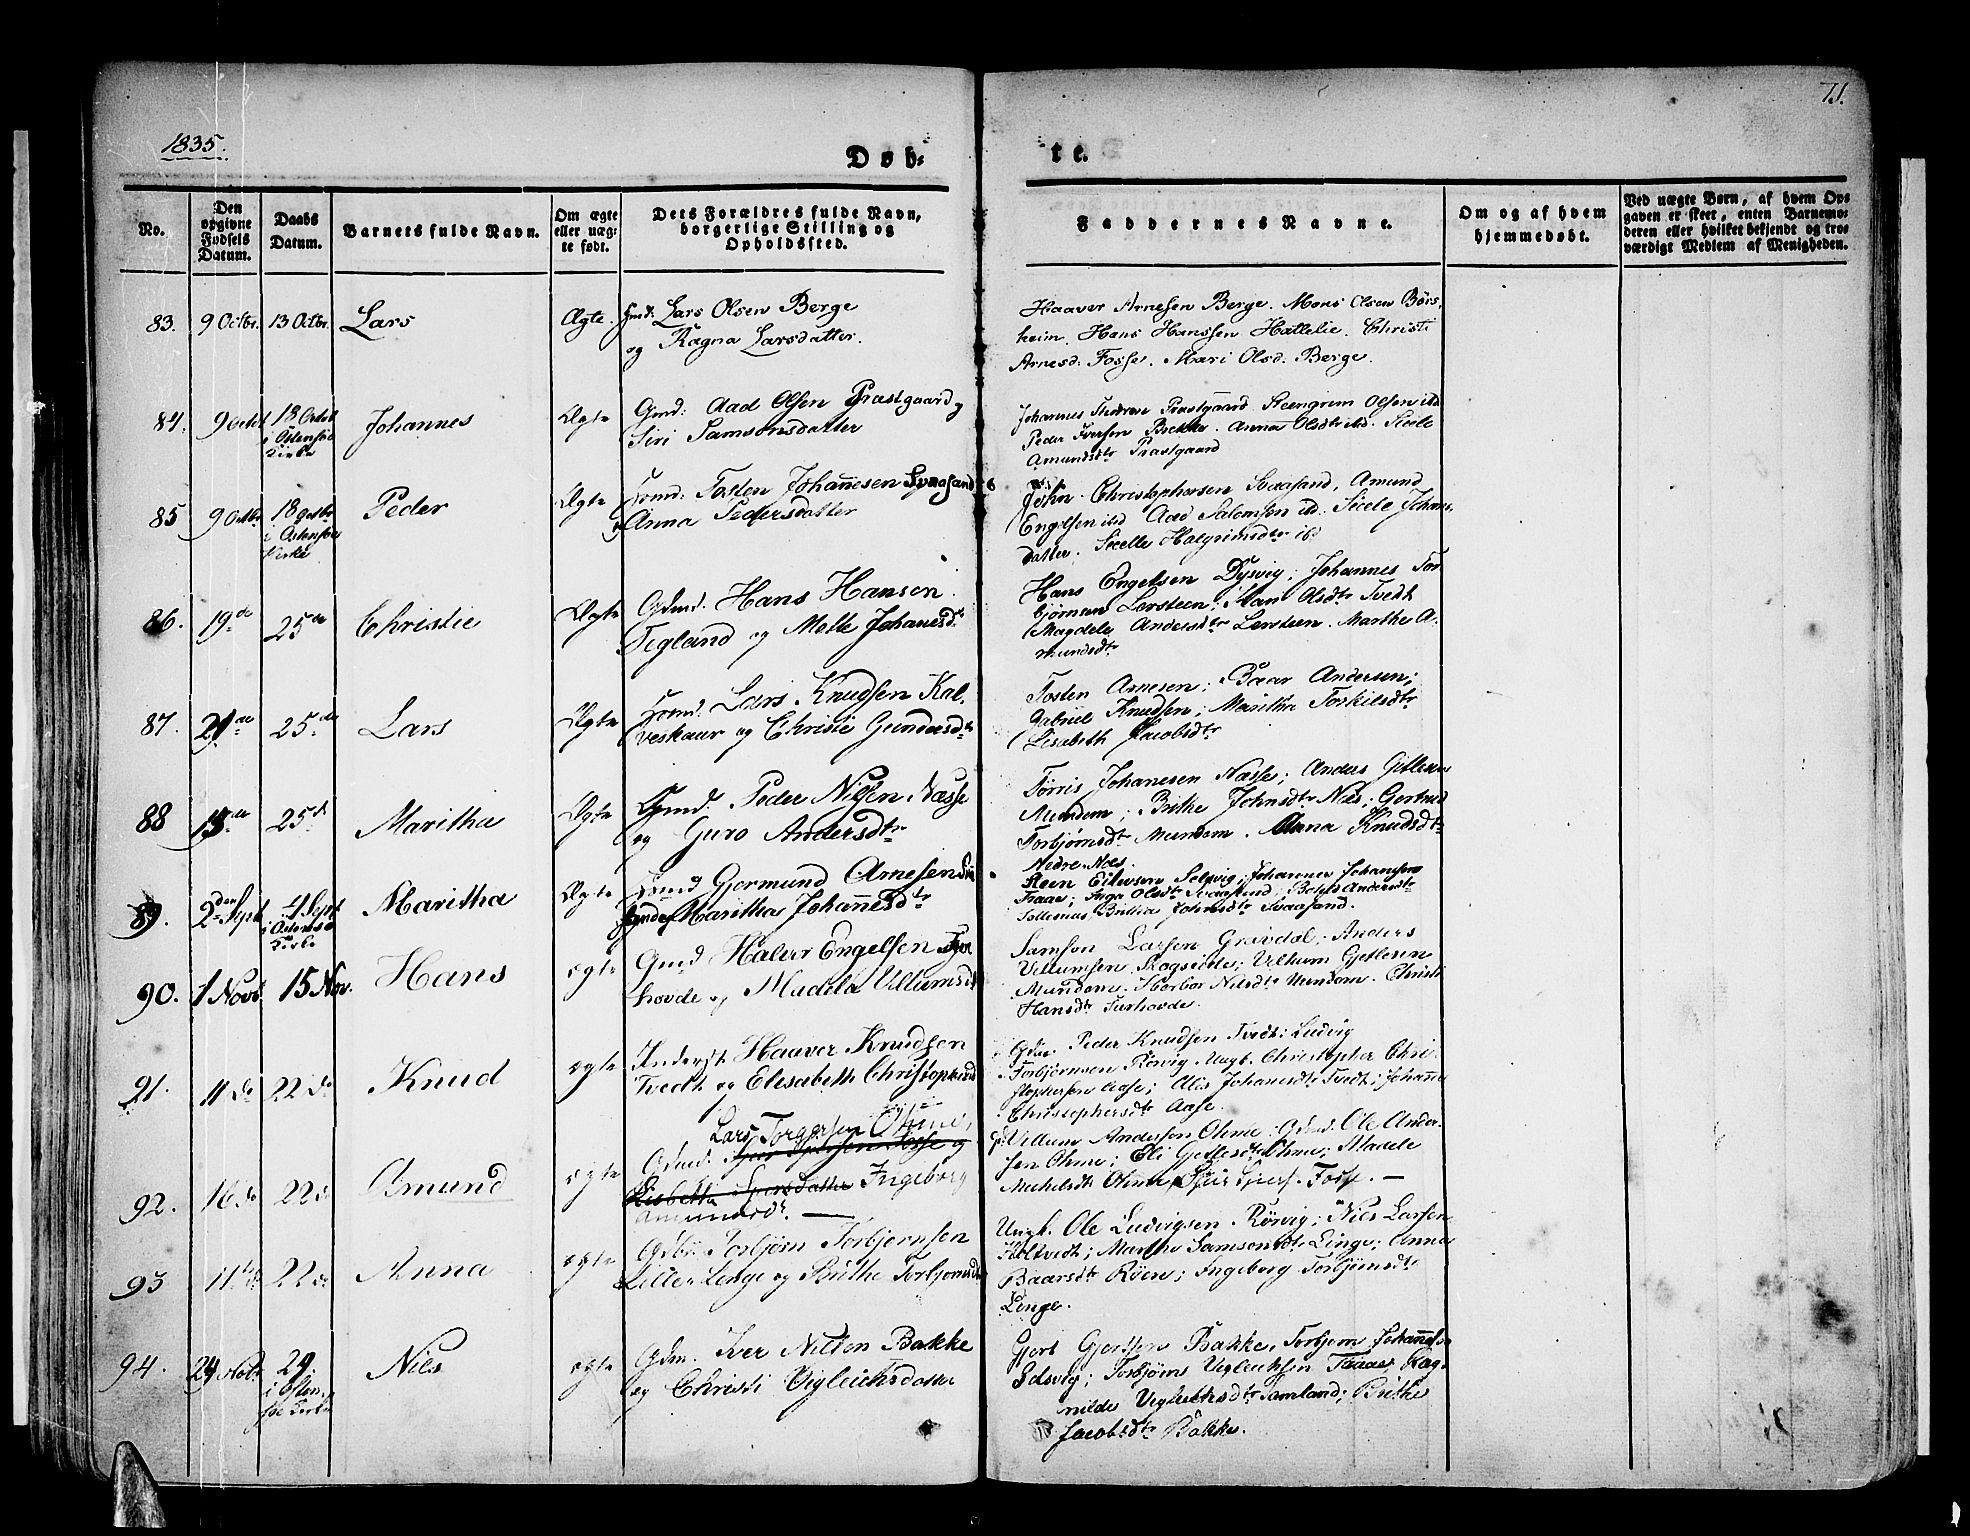 1835.
71.
Døb-
te.
No.
Den opgivne Fødsels Datum.
Daabs Datum.
Barnets fulde Navn.
Om ægte eller uæg-te født.
Dets Forældres fulde Navn, borgerlige Stilling og Opholdssted.
Faddernes Navne.
Om og af hvem hjemmedøbt.
Ved uægte Børn, af hvem Op-gaven er skeet, enten Barnemo-deren eller hvilket bekjendt og tro-værdigt Medlem af Menigheden.
83. 9 Octbr. 13 Octbr. Lars Ægte. Gmd. Lars Olsen Berge
og Ragna Larsdatter.
Haaver Arnesen Berge. Mons Olsen Børs-
heim. Hans Hanssen Hattelie. Christi
Arnesd. Fosse. Mari Olsd. Berge.
84. 9 Octbr 18 Octbr
i Østensøe
Kirke
Johannes Ægte Gmd: Aad Olsen Præstgaard og
Siri Samsonsdatter
Johannes Præstgaard Steengrim Olsen ibd
Peder Iversen Brekke. Anna Olsdtr ibd. Sicele
Amundsdtr Præstgaard
85 9 Octbr 18 Octbr
i Østensøe
Kirke
Peder Ægte Gmd: Tosten Johannesen Svaasand
og Anna Pedersdatter
John Christophersen Svaasand, Amund
Engelsen ibd Aad Salomsen ibd. Sicele Johans-
datter. Sicelle Halgrimsdtr ibd
86. 19de 25de Christie Ægte Gdmd. Hans Hansen
Tegland og Mette Johanesdtr
Hans Engelsen Dysvig; Johannes Tor
bjørnsen Lersteen; Mari Olsdtr Tvedt
Magdele Andersdtr Lersteen. Marthe A-
mundsdtr
87. 21de 25de Lars Ægte Gmd. Lars Knudsen Kal-
veskaur og Christie Gundersdtr
Tosten Arnesen; Baar Andersen;
Gabriel Knudsen; Maritha Torkilsdtr
Lisabeth Jacobsdtr
88 19de 25de Maritha Ægte Gmd. Peder Nilsen Næsse
og Guro Andersdtr
Tørris Johanesen Næsse; Anders Gitlesen
Mundem; Brithe Johnsdtr Næs; Gertrud
Torbjørnsdtr Mundem. Anna Knudsdtr
Nedre-Næs.
89. 2den Sept 4 Sept
i Østensø
Kirke
Maritha Ægte Gmd Gjermund Arnesen
Maritha Johannesdtr
Steen Selsvig; Johannes Johannesen
Traae; Inga Olsdtr Svaasand;
Brithe Johnsdtr Svaasand.
90. 1 Novb. 15 Nov. Hans ægte Gmd Halvor Engelsen
hovde og Madela Villumsdtr
Samson Larsen Gravdal; Anders
Villumsen Skogseide; Vilhum Gitlesen
Mundem. Herbor Nilsdtr Mundem. Christi
Hansdtr Turhovde.
91. 11 do 22 do Knud ægte Inderst Haaver Knudsen
Tvedt og Elesabeth Christophersd
Gdm. Peder Knudsen Tvedt; Ludvig
Torbjørnsen Rørvig Ungk. Christopher Chri-
stophersen Aase; Alis Johanesdtr Tvedt; Johanna
Christophersdtr Aase.
92. 16 do 22 do Amund ægte Lars Torgersen Øhme,
Gdmd. Spur Spursen Fosse og
Lisbetha Spursdatter Ingeborg
Amundsdtr.
Villum Andersson Øhme. Gdmd. Ole Ander-
sen Øhme; Eli Gitlesdtr Øhme; Madele
Michelsdtr Øhme, Spur Spurs. Fosse. —
93 11 do 22 do Anna ægte Gdbr. Torbjørn Torbjørnsen
Litler Lenge og Brithe Torbjørnsdtr
Ungk. Ole Ludvigsen Rørvig; Niels Larsen
Holtvedt; Marthe Samsonsdtr Linge; Anna
Baarsdtr Røen; Ingeborg Torbjørnsdtr
Linge.
94. 24 Nobr 29.
i Østen-
søe Kirke
Niels ægte Gdm. Iver Nilsen Bakke
og Christi Vigleichsdatter
Gjert Gjertsen Bakke, Torbjørn Johannesen
Idsvig; Torbjørn Vigleiksen Traae; Rag-
nilde Vigleiksdtr Samland; Brithe
Jacobsdtr Bakke.